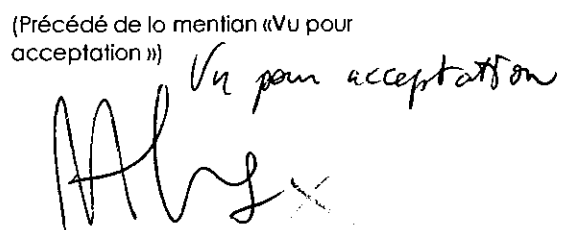 (Précédé de lo mentian «Vu pour
acceptation»)
Vu pour acceptation